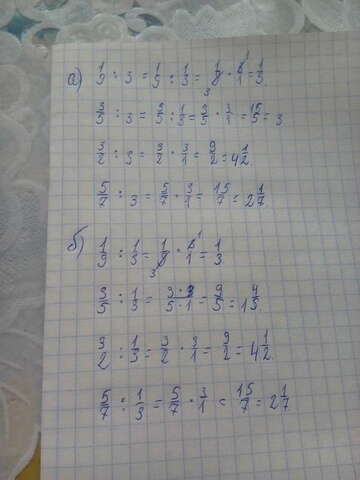 а) 1/9 : 3 = 1/9 : 1/3 = 1/9 · 3/1 = 1/3
3/5 : 3 = 3/5 : 1/3 = 3/5 · 3/1 = 15/5 = 3
3/2 : 3 = 3/2 · 3/1 = 9/2 = 4 1/2
5/7 : 3 = 5/7 · 3/1 = 15/7 = 2 1/7
б) 1/9 : 1/3 = 1/9 · 3/1 = 1/3
3/5 : 1/3 = 3·3/5·1 = 9/5 = 1 4/5
3/2 : 1/3 = 3/2 · 3/1 = 9/2 = 4 1/2
5/7 : 1/3 = 5/7 · 3/1 = 15/7 = 2 1/7